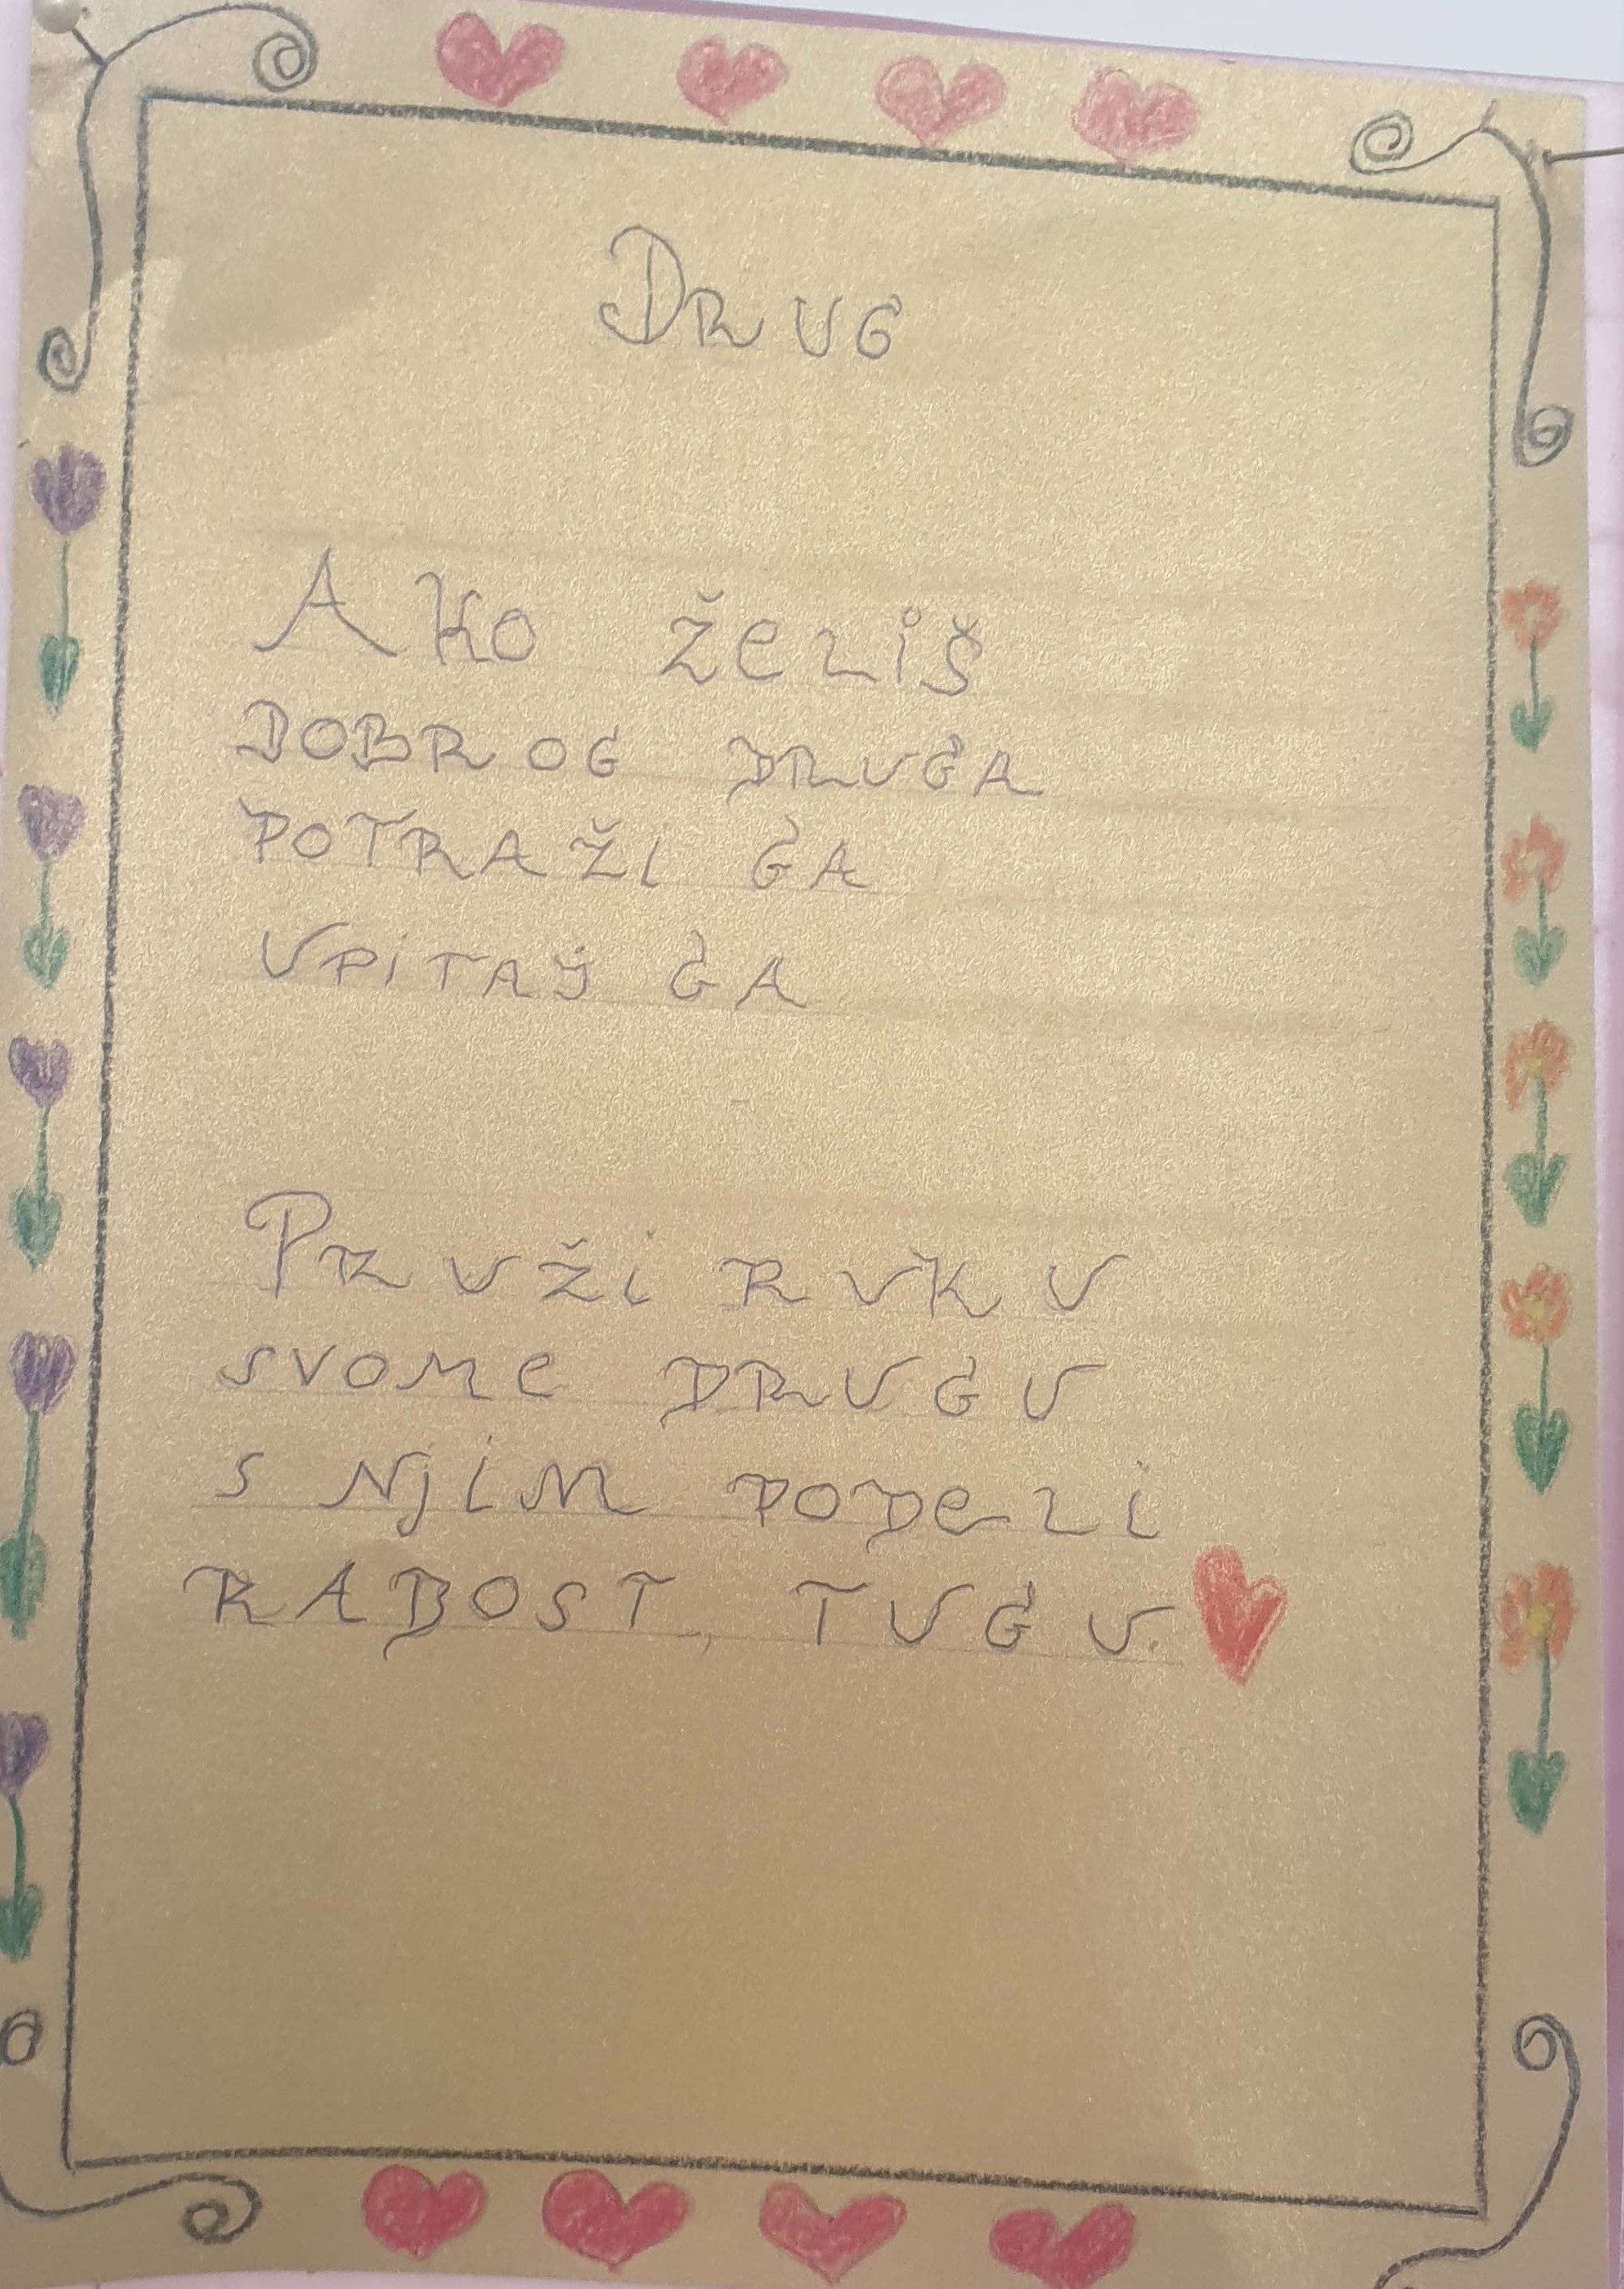 DRUG
AKO ŽELIŠ
DOBROG DRUGA
POTRAŽI GA
UPITAJ GA
PRUŽI RUKU
SVOME DRUGU
S NJIM PODELI
RADOST, TUGU.